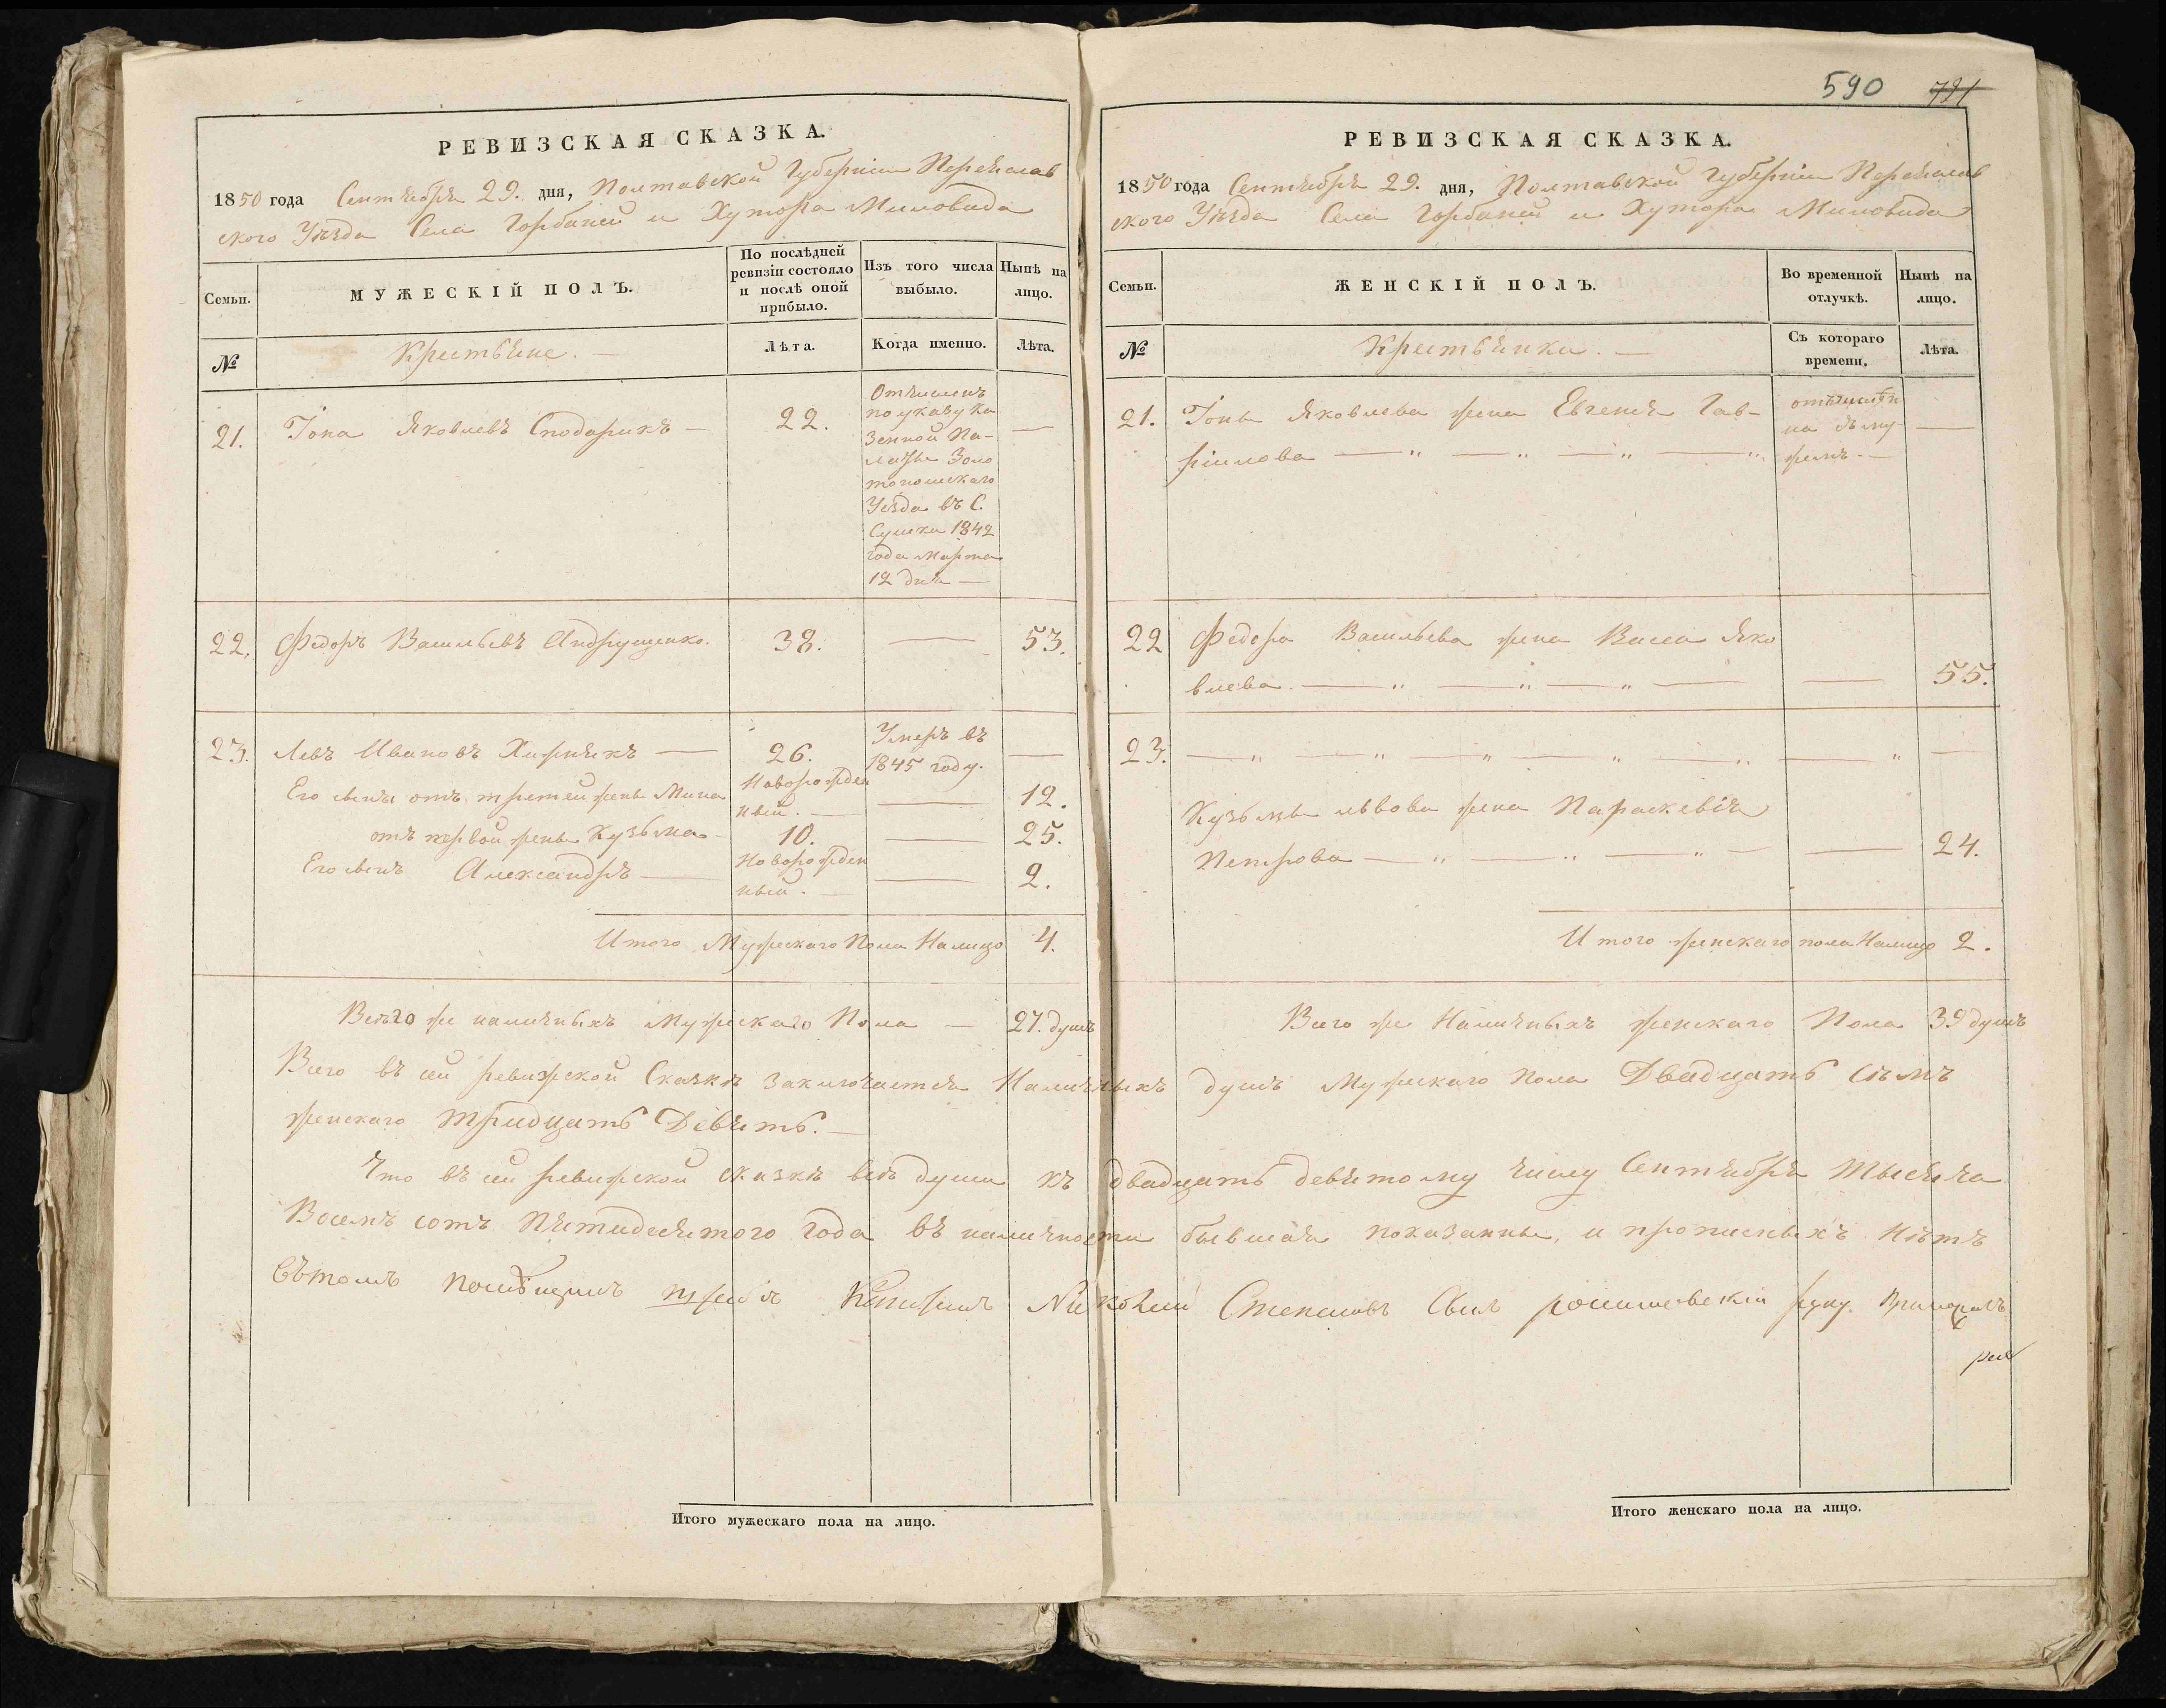 590 781
РЕВИЗСКАЯ СКАЗКА.
1850 года Сентября 29. дня, Полтавской Губернiи Переяслав
ского Уѣзда Села Горбаней и Хутора Миловида
Семьи.
МУЖЕСКIЙ ПОЛЪ.
По послѣдней
ревизiи состояло
и послѣ оной
прибыло.
Изъ того числа
выбыло.
Нынѣ на
лицо.
№
Крестьяне. —
Лѣта.
Когда именно.
Лѣта.
21. Iона Яковлевъ Сподарикъ — 22. —
Отчисленъ
по указу Ка
зенной Па-
латы Золо
тоношскаго
Уезда въ С.
Сушки 1842
года Марта
12 дня —
22. Федоръ Васильевъ Андрущенко. 38. — 53.
23. Левъ Ивановъ Хижнякъ — 26. Умеръ въ
1845 году. —
Его сынъ отъ третей жены Мина Новорожден
ный. — — 12.
отъ первой жены Кузьма — 10. — 25.
Его сынъ Александръ — Новорожден
ный. — — 2.
Итого Мужескаго Пола Налицо 4.
Всего же наличныхъ Мужескаго Пола — 27. душъ
Итого мужескаго пола на лицо.
РЕВИЗСКАЯ СКАЗКА.
1850 года Сентября 29. дня, Полтавской Губернiи Переяслав
ского Уѣзда Села Горбаней и Хутора Миловида
Семьи.
ЖЕНСКIЙ ПОЛЪ.
Во временной
отлучкѣ.
Нынѣ на
лицо.
№
Крестьянки. —
Съ котораго
времени.
Лѣта.
21. Iоны Яковлева жена Евгенiя Гав-
рiилова — " — " — " — "
на съ му-
жемъ. —
—
22 Федора Васильева жена Васса Яко
влева. — " — " — " — — 55.
23. — " — " — " — " — " — " —
Кузьмы Львова жена Параскевiя
Петрова — " — " — " — — 24.
Итого женскаго пола Налицо 2.
Всего же Наличныхъ женскаго Пола 39 душъ
Всего въ сей ревизской Сказкѣ заключается Наличныхъ душъ Мужескаго пола Двадцать семъ
женскаго тридцать Девять. —
Что въ сей ревизской сказкѣ всѣ души къ двадцать девятому числу Сентября тысяча
Восемъ сотъ пятидесятого года въ наличности бывшiя показанны, и прописныхъ нѣтъ
Вътомъ помѣщикъ Николай Степановъ Сынъ руку приложилъ
Итого женскаго пола на лицо.